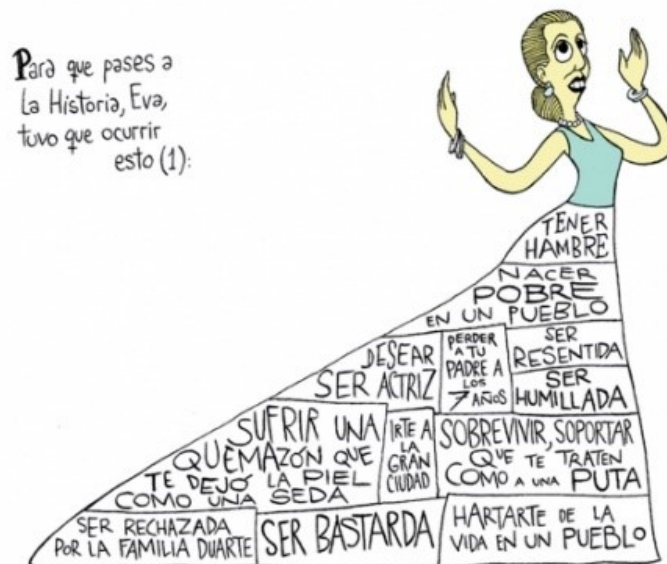 Para que pases a
La Historia, Eva,
tuvo que ocurrir
esto (1):
TENER
HAMBRE
NACER
POBRE
EN UN PUEBLO
DESEAR
SER ACTRIZ
PERDER
A TU
PADRE A
LOS
7 AÑOS
SER
RESENTIDA
SER
HUMILLADA
SUFRIR UNA
QUEMAZÓN QUE
TE DEJÓ LA PIEL
COMO UNA SEDA
IRTE A
LA
GRAN
CIUDAD
SOBREVIVIR, SOPORTAR
QUE TE TRATEN
COMO A UNA PUTA
SER RECHAZADA
POR LA FAMILIA DUARTE
SER BASTARDA
HARTARTE DE LA
VIDA EN UN PUEBLO